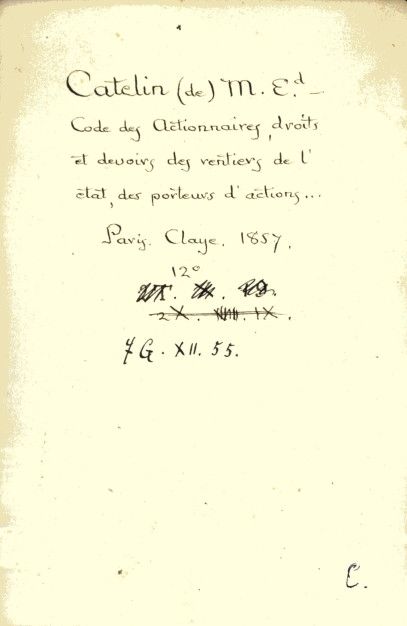 Catelin (de) M. E.d
Code des Actionnaires, droits
et devoirs des rentiers de l'
état, des porteurs d'actions...
Paris. Claye. 1857.
12°
2 X. IX.
7 G. XII. 55.
E.